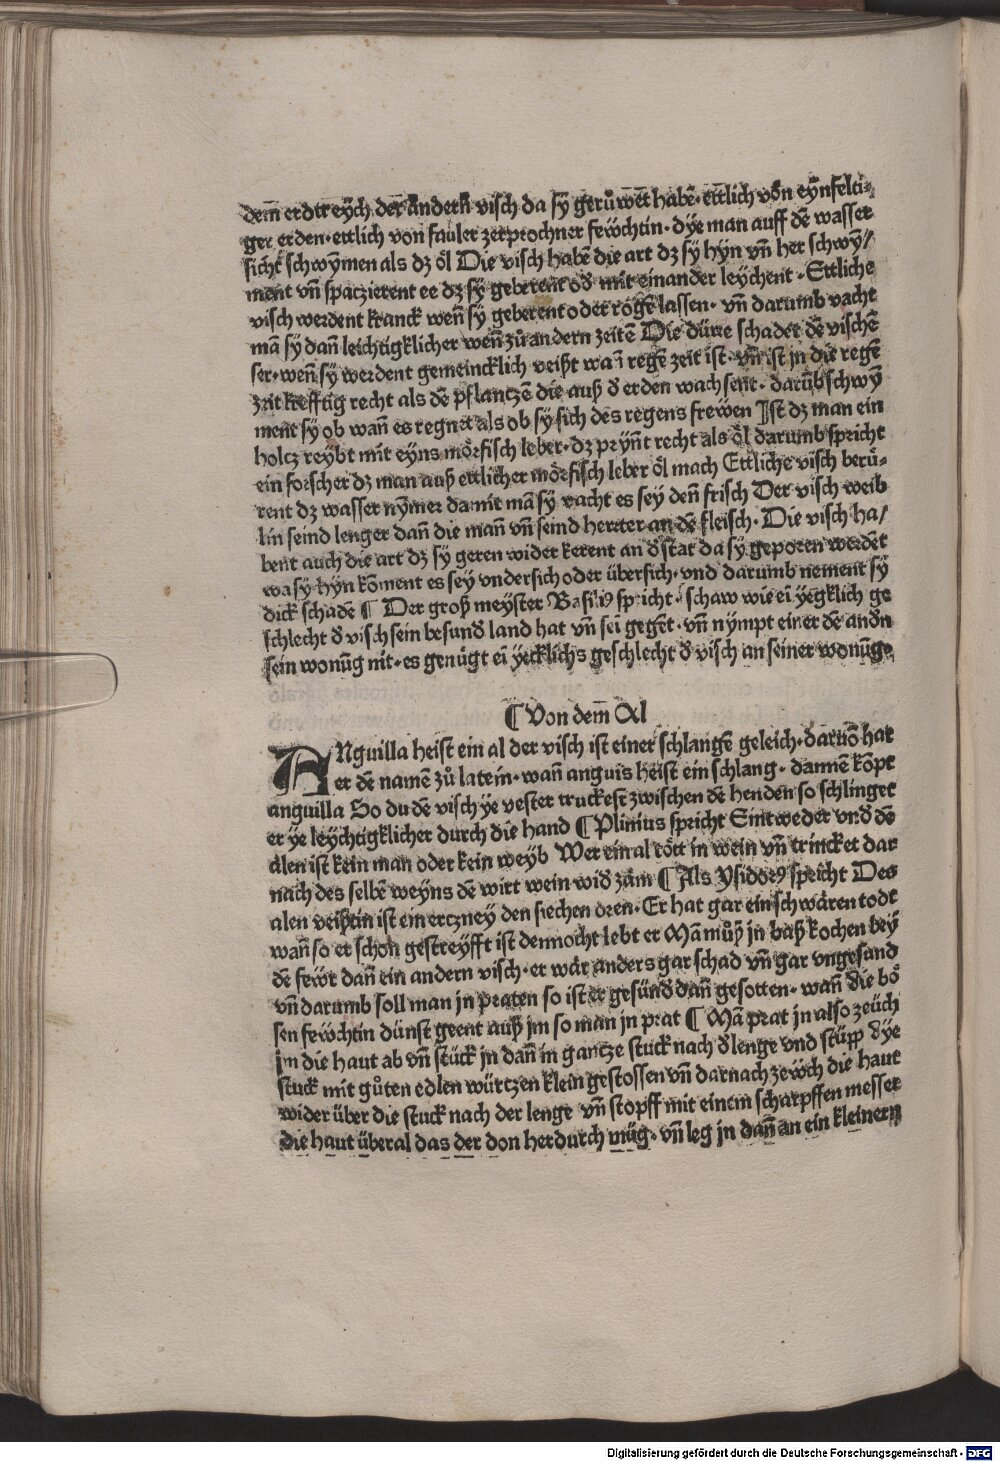 dem̄ erdtreych der andern visch da sy gerůwēt habē · ettlich von eynfelti⸗
ger erden · ettlich von fauler zerprochner fewchtin · dye man auff dē wasser
sicht schwymen als dz öl Die visch habē die art dz sy hyn vñ her schwy̅/
ment vñ spaczierent ee dz sy geberent od̕ mit einander leychent · Ettliche
visch werdent kranck weñ sy geberent oder rögē lassen · vñ darumb vacht
mā sy dañ leichtigklicher weñ zů andern zeitē Die dürre schadet dē vischē
ser · weñ sy werdent gemeincklich veißt wañ regē zeit ist · vñ ist jn die regē
zeit krefftig recht als dē pflantzē die auß d̕ erden wachsent · darūb schwy̅
ment sy ob wañ es regnet als ob sy sich des regens frewen Ist dz man ein
holcz reybt mit eyns mörfisch leber · dz pryñt recht als öl darumb spricht
ein forscher dz man auß ettlicher mörfisch leber öl mach Ettliche visch berü⸗
rent dz wasser nymer damit mā sy vacht es sey deñ frisch Der visch weib
lin seind lenger dañ die mañ vñ seind herter an dē fleisch · Die visch ha/
bent auch die art dz sy geren wider kerent an d̕ stat da sy geporen werdēt
wa sy hyn kōment es sey vndersich oder übersich · vnd darumb nement sy
dick schadē ¶ Der groß meyster Basiliꝰ spricht · schaw wie eī yegklich ge
schlecht d̕ visch sein besund̕ land hat vñ sei gegēt · vñ nympt einer dē andn̕
sein wonūg nit · es genügt eī yecklichs geschlecht d̕ visch an seiner wonūge
¶ Von dem̄ Al
ANguilla heist ein al der visch ist einer schlangē geleich · daruō hat
er dē namē zů latein · wañ anguis heist ein schlang · dannē kōpt
anguilla So du dē visch ye vester truckest zwischen dē henden so schlinget
er ye leychtigklicher durch die hand ¶ Plinius spricht Eintweder vnd̕ dē
älen ist kein man oder kein weyb Wer ein al tött in wein vñ trincket dar
nach des selbē weyns dē wirt wein wid̕ zäm ¶ Als Ysidorꝰ spricht Des
alen veißtin ist ein erczney den siechen oren · Er hat gar ein schwären todt
wañ so er schon gestreyfft ist dennocht lebt er Mā můß jn baß kochen bey
dē fewr dañ ein andern visch · er wär anders gar schad vñ gar vngesund
vñ darumb soll man jn praten so ist er gesünd̕ dañ gesotten · wañ die bö
sen fewchtin dünst geent auß jm so man jn prat ¶ Mā prat jn also zeüch
jm die haut ab vñ stück jn dañ in gantze stuck nach d̕ lenge vnd stüpp dye
stuck mit gůten edlen würtzen klein gestossen vñ darnach zewch die haut
wider über die stuck nach der lenge vñ stopff mit einem scharpffen messer
die haut überal das der don herdurch müg · vñ leg jn dañ an ein kleinern
Digitalisierung gefördert durch die Deutsche Forschungsgemeinschaft - DFG